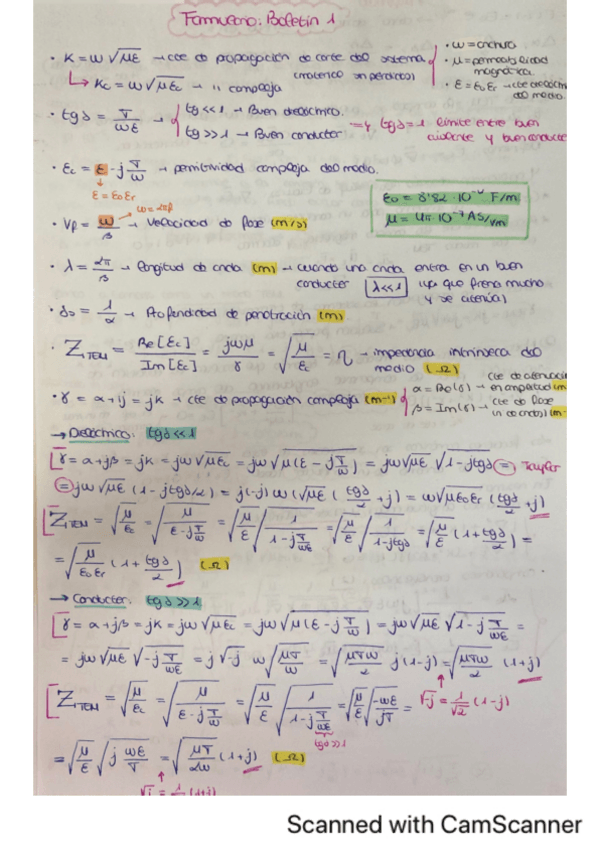 Formulario: Boletín 1
· K = ω √με → cte de propagación de corte del sistema
(material sin pérdidas)
· ω = anchura
· μ = permeabilidad
magnética
· ε = ε0 εr → cte dieléctrica
del medio.
↳ Kc = ω √μεc → " compleja
· tgδ = σ/ωε →
tgδ << 1 → Buen dieléctrico.
tgδ >> 1 → Buen conductor
⇒ tgδ = 1 límite entre buen
aislante y buen conductor
· εc = ε - j σ/ω → permitividad compleja del medio.
ε = ε0 εr
ω = 2πf
ε0 = 8'82 · 10⁻¹² F/m
μ = 4π 10⁻⁷ AS/Vm
· Vp = ω/β → Velocidad de fase (m/s)
· λ = 2π/β → longitud de onda (m) → cuando una onda entra en un buen
conductor λ<<1 (up que frena mucho
y se atenúa)
· δ0 = 1/α → Profundidad de penetración (m)
· Z TEM = Re[εc]/Im[εc] = jωμ/γ = √(μ/εc) = η → impedancia intrínseca del
medio (Ω)
· γ = α + jβ = jK → cte de propagación compleja (m⁻¹)
cte de atenuación
α = Re(γ) → en amplitud (m
β = Im(γ) → cte de fase
(m
→ Dieléctrico: tgδ << 1
γ = α + jβ = jK = jω √μεc = jω √(μ(ε - j σ/ω)) = jω √με √(1 - jtgδ) = Taylor
= jω √με (1 - jtgδ/2) = j(-j) ω √με (tgδ/2 + j) = ω √(με0εr) (tgδ/2 + j)
Z TEM = √(μ/εc) = √(μ/(ε - j σ/ω)) = √(μ/ε) √(1/(1 - j σ/ωε)) = √(μ/ε) √(1/(1 - jtgδ)) = √(μ/ε) (1 + tgδ/2) =
= √(μ/ε0εr) (1 + tgδ/2) (Ω)
→ Conductor: tgδ >> 1
γ = α + jβ = jK = jω √μεc = jω √(μ(ε - j σ/ω)) = jω √με √(1 - j σ/ωε) =
= jω √με √(-j σ/ωε) = j √-j ω √(μσ/ω) = √(μσω/2) j(1 - j) = √(μσω/2) (1 + j)
√-j = 1/√2 (1 - j)
Z TEM = √(μ/εc) = √(μ/(ε - j σ/ω)) = √(μ/ε) √(1/(1 - j σ/ωε)) = √(μ/ε) √(-ωε/jσ) =
tgδ >> 1
= √(μ/ε) √(j ωε/σ) = √(μσ/2ω) (1 + j) (Ω)
√j = 1 (1 + j)
Scanned with CamScanner